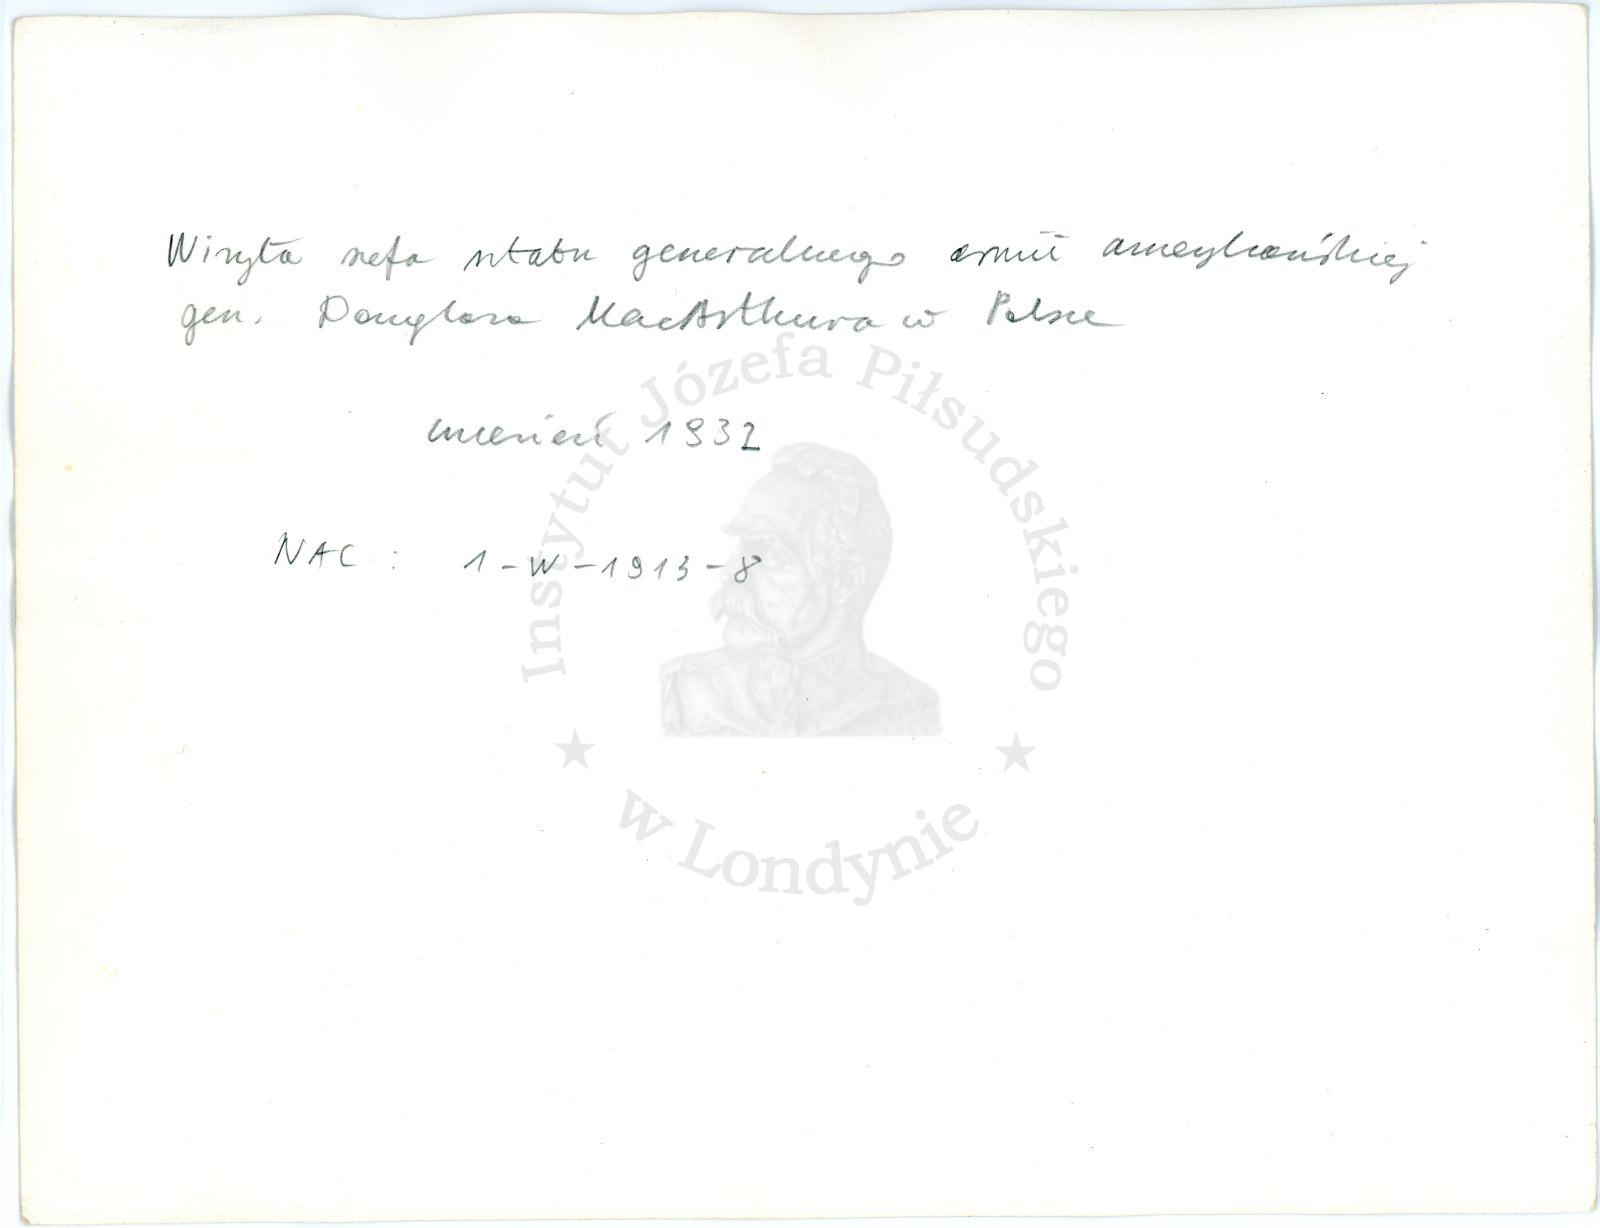 Wizyta szefa sztabu generalnego armii amerykańskiej
gen. Douglasa MacArthura w Polsce
wrzesień 1932
NAC : 1-W-1913-8
Instytut Józefa Piłsudskiego
w Londynie